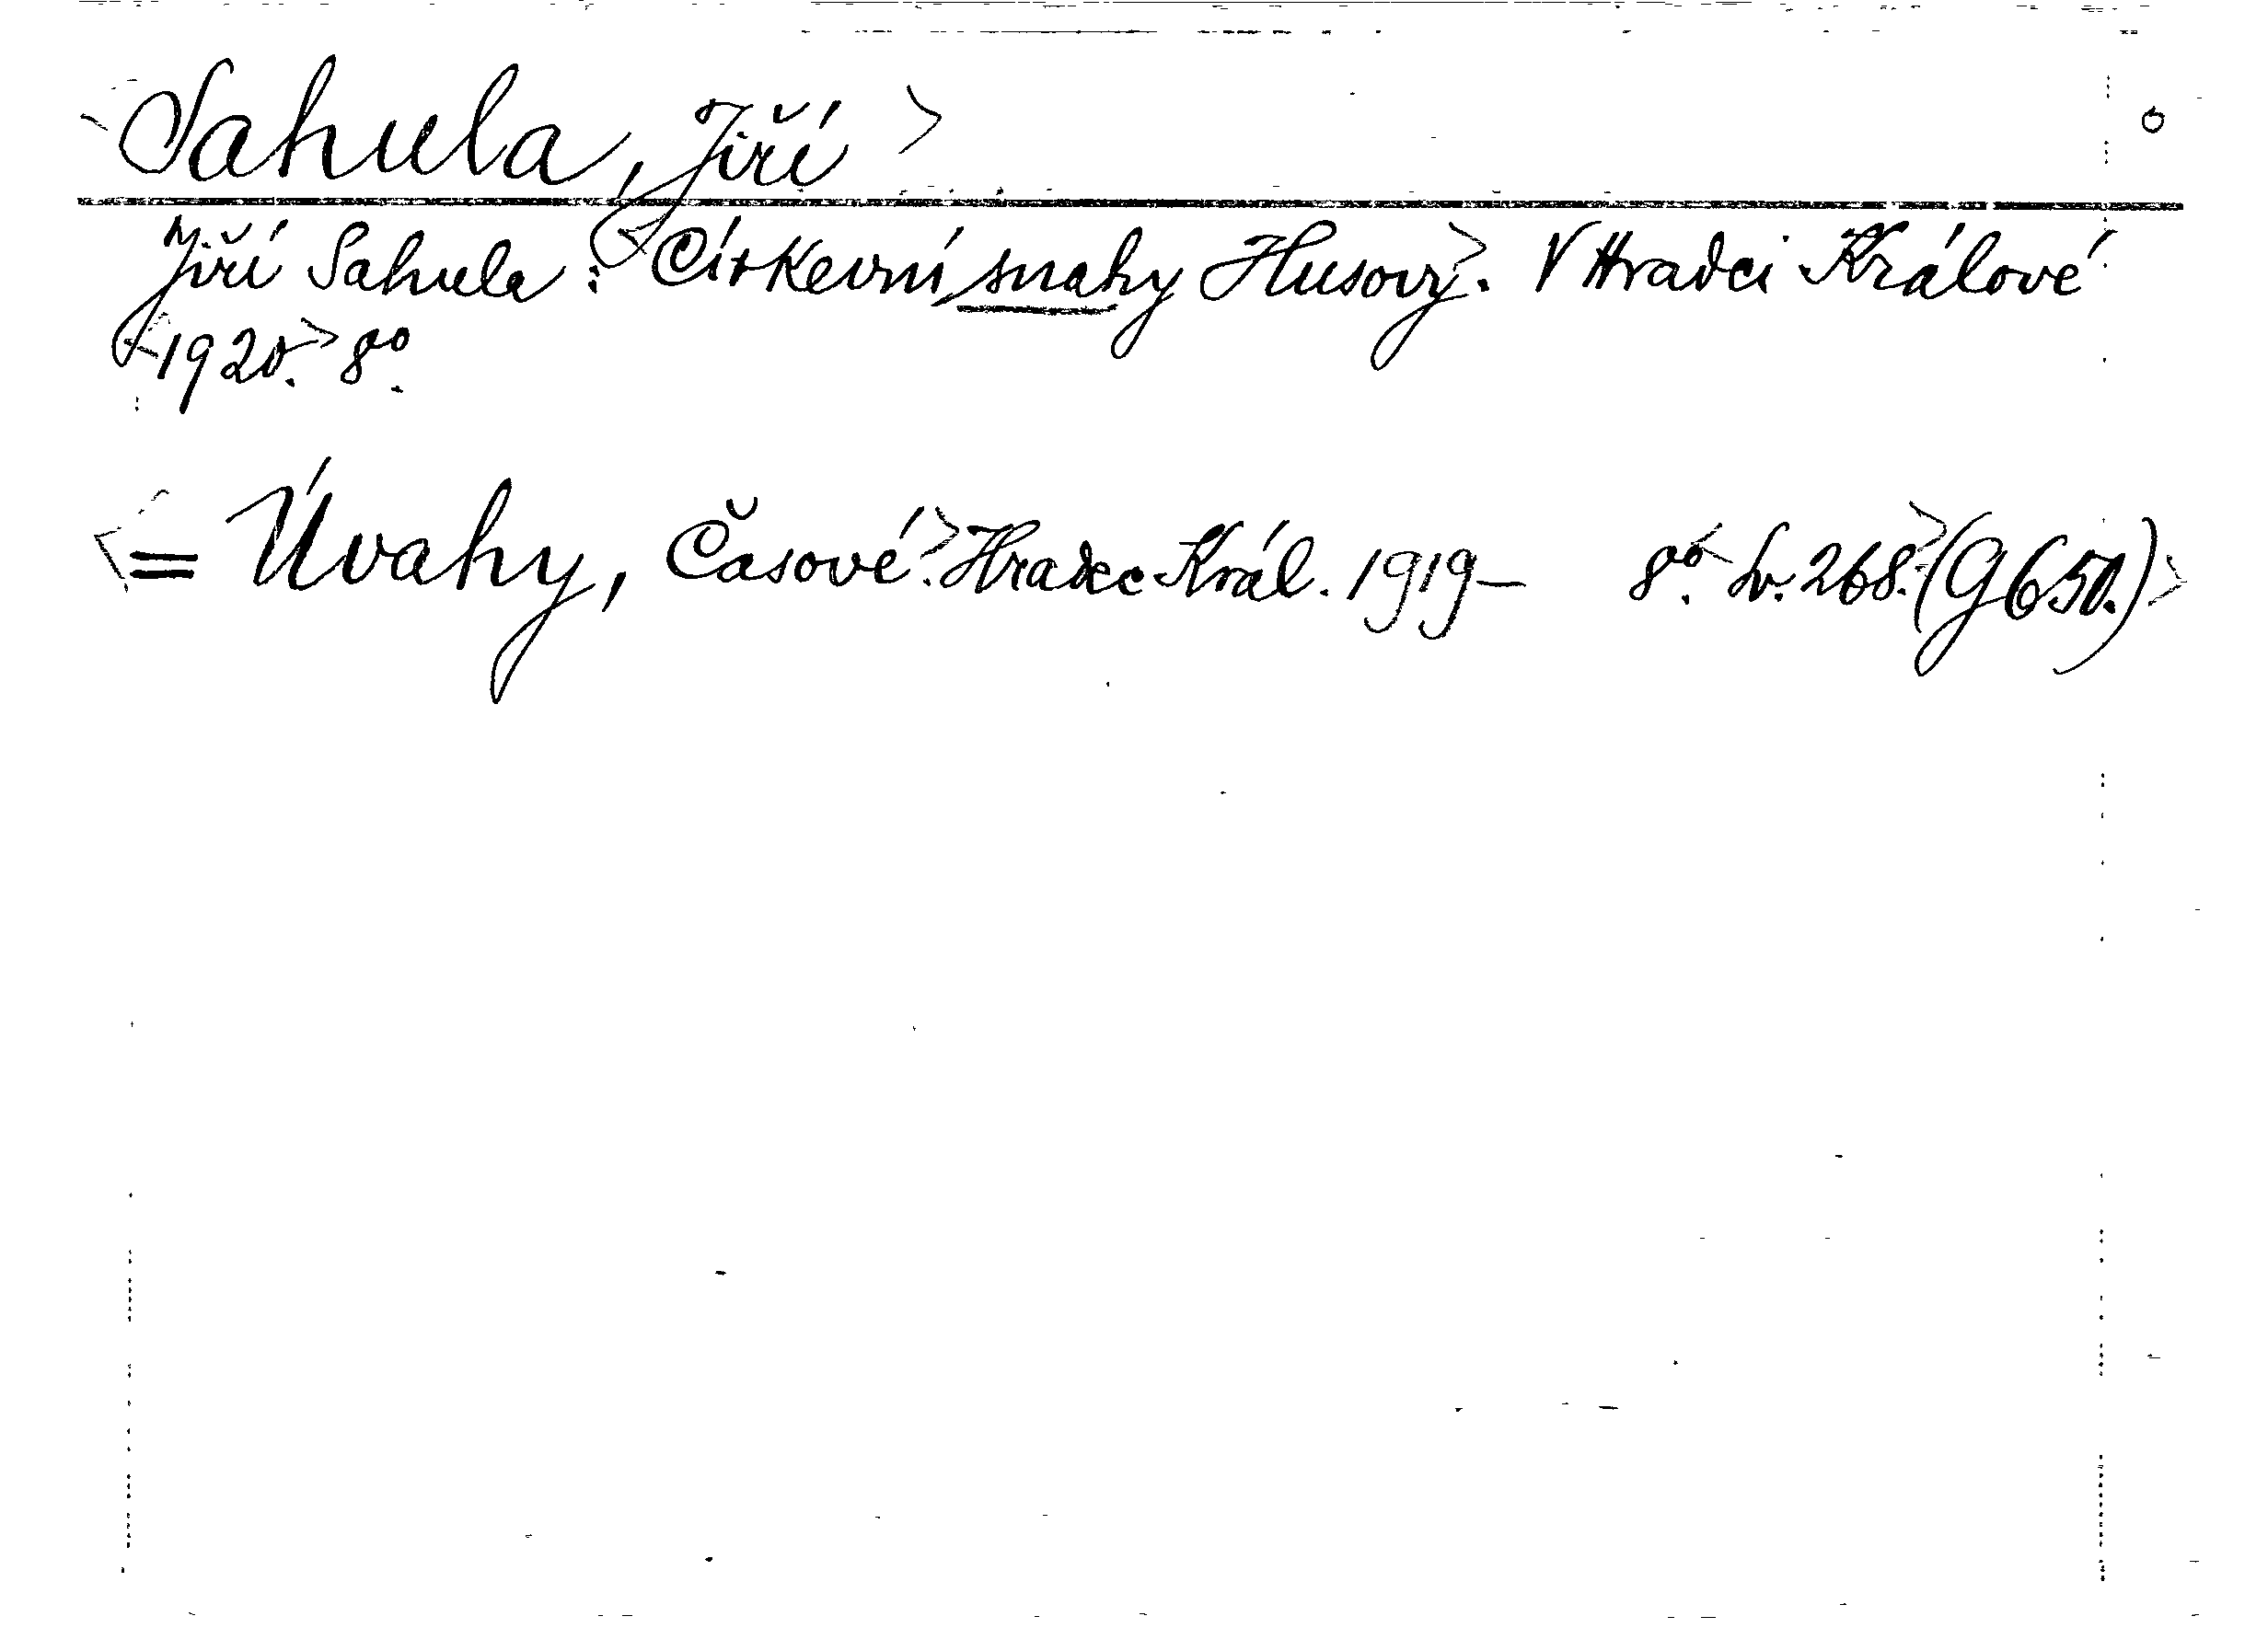 <Sahula, Jiří>
Jiří Sahula: <Církevní snahy Husovy>. V Hradci Králové
<1920.> 8°.
<= Úvahy, Časové.> Hradec Král. 1919– 8°. <Sv. 268.> (G 650.)>